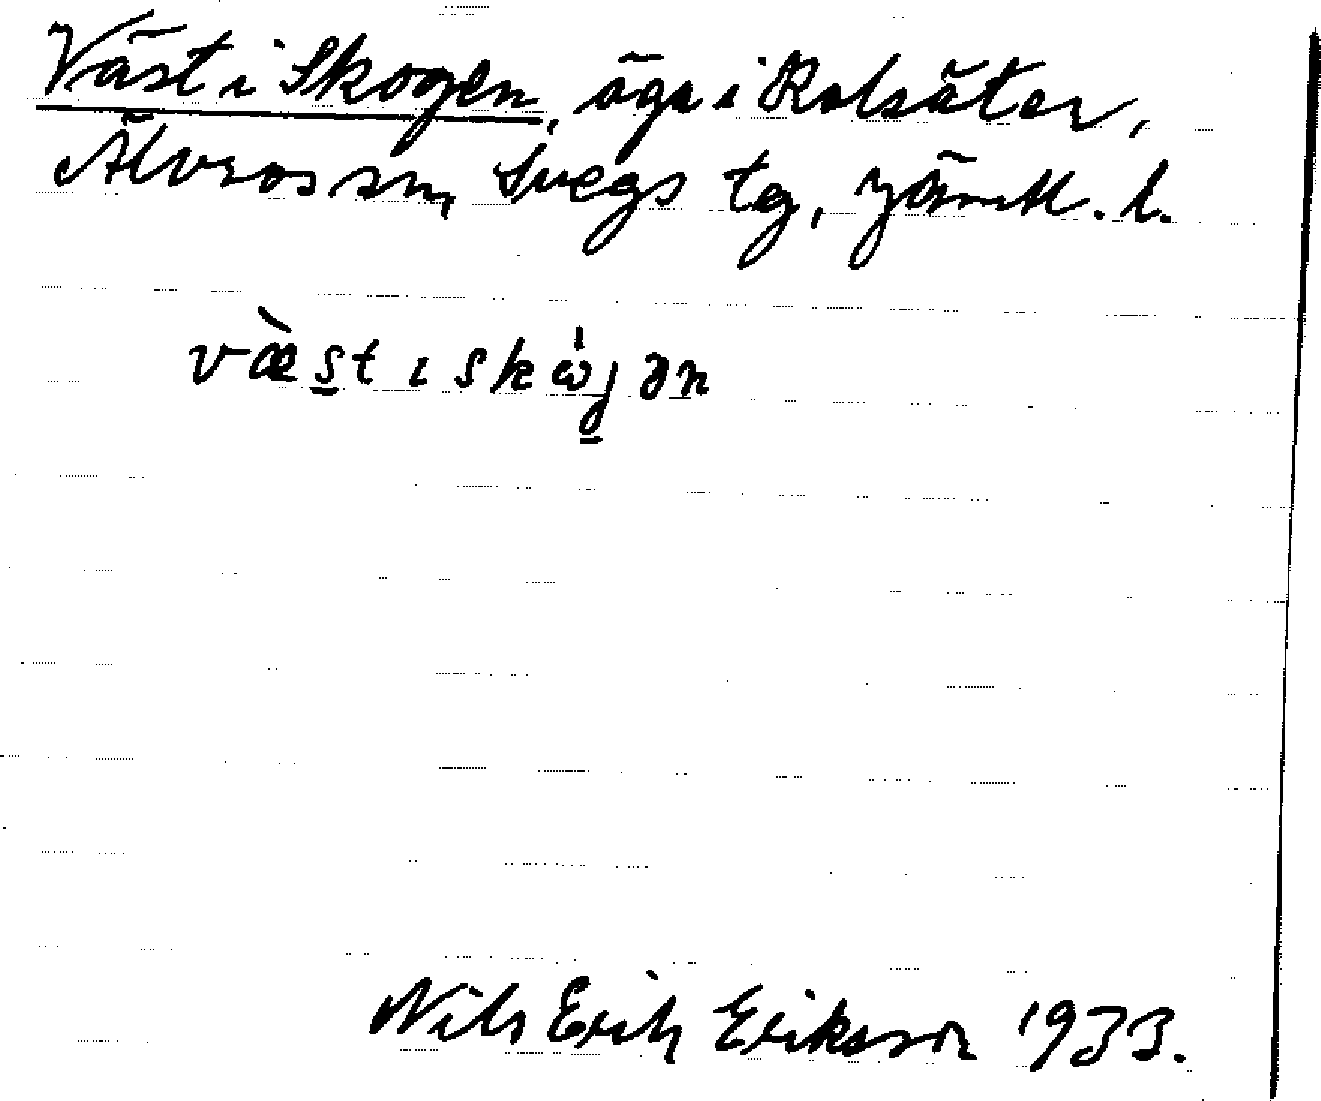 Väst i Skogen, äga i Kolsäter,
Älvros sn, Svegs tg, Jämtl. l.
væ̀st ɩ skώjən
Nils Erik Eriksson 1933.